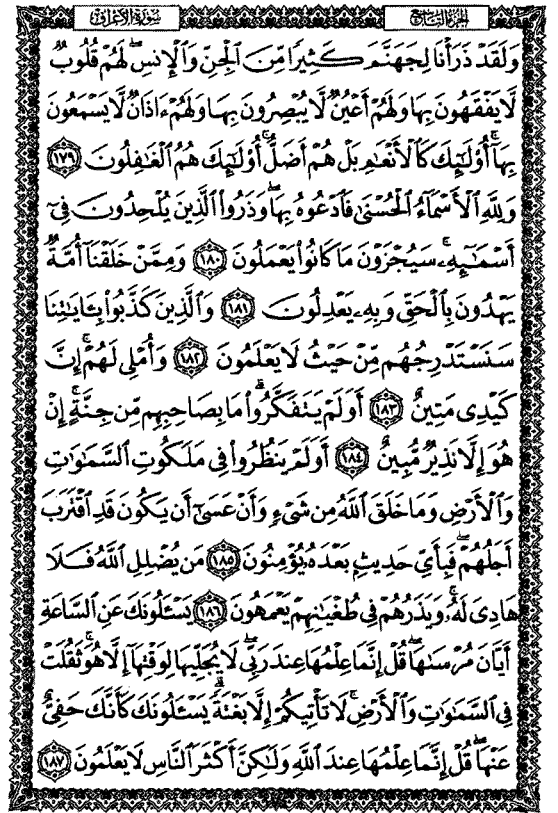 سورة الأعراف الجزء التاسع
وَلَقَدْ ذَرَأْنَا لِجَهَنَّمَ كَثِيرًا مِّنَ الْجِنِّ وَالْإِنسِ ۖ لَهُمْ قُلُوبٌ
لَّا يَفْقَهُونَ بِهَا وَلَهُمْ أَعْيُنٌ لَّا يُبْصِرُونَ بِهَا وَلَهُمْ ءَاذَانٌ لَّا يَسْمَعُونَ
بِهَا ۚ أُو۟لَٰٓئِكَ كَالْأَنْعَٰمِ بَلْ هُمْ أَضَلُّ ۚ أُو۟لَٰٓئِكَ هُمُ الْغَٰفِلُونَ ١٧٩
وَلِلَّهِ الْأَسْمَآءُ الْحُسْنَىٰ فَادْعُوهُ بِهَا ۖ وَذَرُوا۟ الَّذِينَ يُلْحِدُونَ فِىٓ
أَسْمَٰٓئِهِۦ ۚ سَيُجْزَوْنَ مَا كَانُوا۟ يَعْمَلُونَ ١٨٠ وَمِمَّنْ خَلَقْنَآ أُمَّةٌ
يَهْدُونَ بِالْحَقِّ وَبِهِۦ يَعْدِلُونَ ١٨١ وَالَّذِينَ كَذَّبُوا۟ بِـَٔايَٰتِنَا
سَنَسْتَدْرِجُهُم مِّنْ حَيْثُ لَا يَعْلَمُونَ ١٨٢ وَأُمْلِى لَهُمْ ۚ إِنَّ
كَيْدِى مَتِينٌ ١٨٣ أَوَلَمْ يَتَفَكَّرُوا۟ ۗ مَا بِصَاحِبِهِم مِّن جِنَّةٍ ۚ إِنْ
هُوَ إِلَّا نَذِيرٌ مُّبِينٌ ١٨٤ أَوَلَمْ يَنظُرُوا۟ فِى مَلَكُوتِ السَّمَٰوَٰتِ
وَالْأَرْضِ وَمَا خَلَقَ اللَّهُ مِن شَىْءٍ وَأَنْ عَسَىٰٓ أَن يَكُونَ قَدِ اقْتَرَبَ
أَجَلُهُمْ ۖ فَبِأَىِّ حَدِيثٍۭ بَعْدَهُۥ يُؤْمِنُونَ ١٨٥ مَن يُضْلِلِ اللَّهُ فَلَا
هَادِىَ لَهُۥ ۚ وَيَذَرُهُمْ فِى طُغْيَٰنِهِمْ يَعْمَهُونَ ١٨٦ يَسْـَٔلُونَكَ عَنِ السَّاعَةِ
أَيَّانَ مُرْسَىٰهَا ۖ قُلْ إِنَّمَا عِلْمُهَا عِندَ رَبِّى ۖ لَا يُجَلِّيهَا لِوَقْتِهَآ إِلَّا هُوَ ۚ ثَقُلَتْ
فِى السَّمَٰوَٰتِ وَالْأَرْضِ ۚ لَا تَأْتِيكُمْ إِلَّا بَغْتَةً ۗ يَسْـَٔلُونَكَ كَأَنَّكَ حَفِىٌّ
عَنْهَا ۖ قُلْ إِنَّمَا عِلْمُهَا عِندَ اللَّهِ وَلَٰكِنَّ أَكْثَرَ النَّاسِ لَا يَعْلَمُونَ ١٨٧